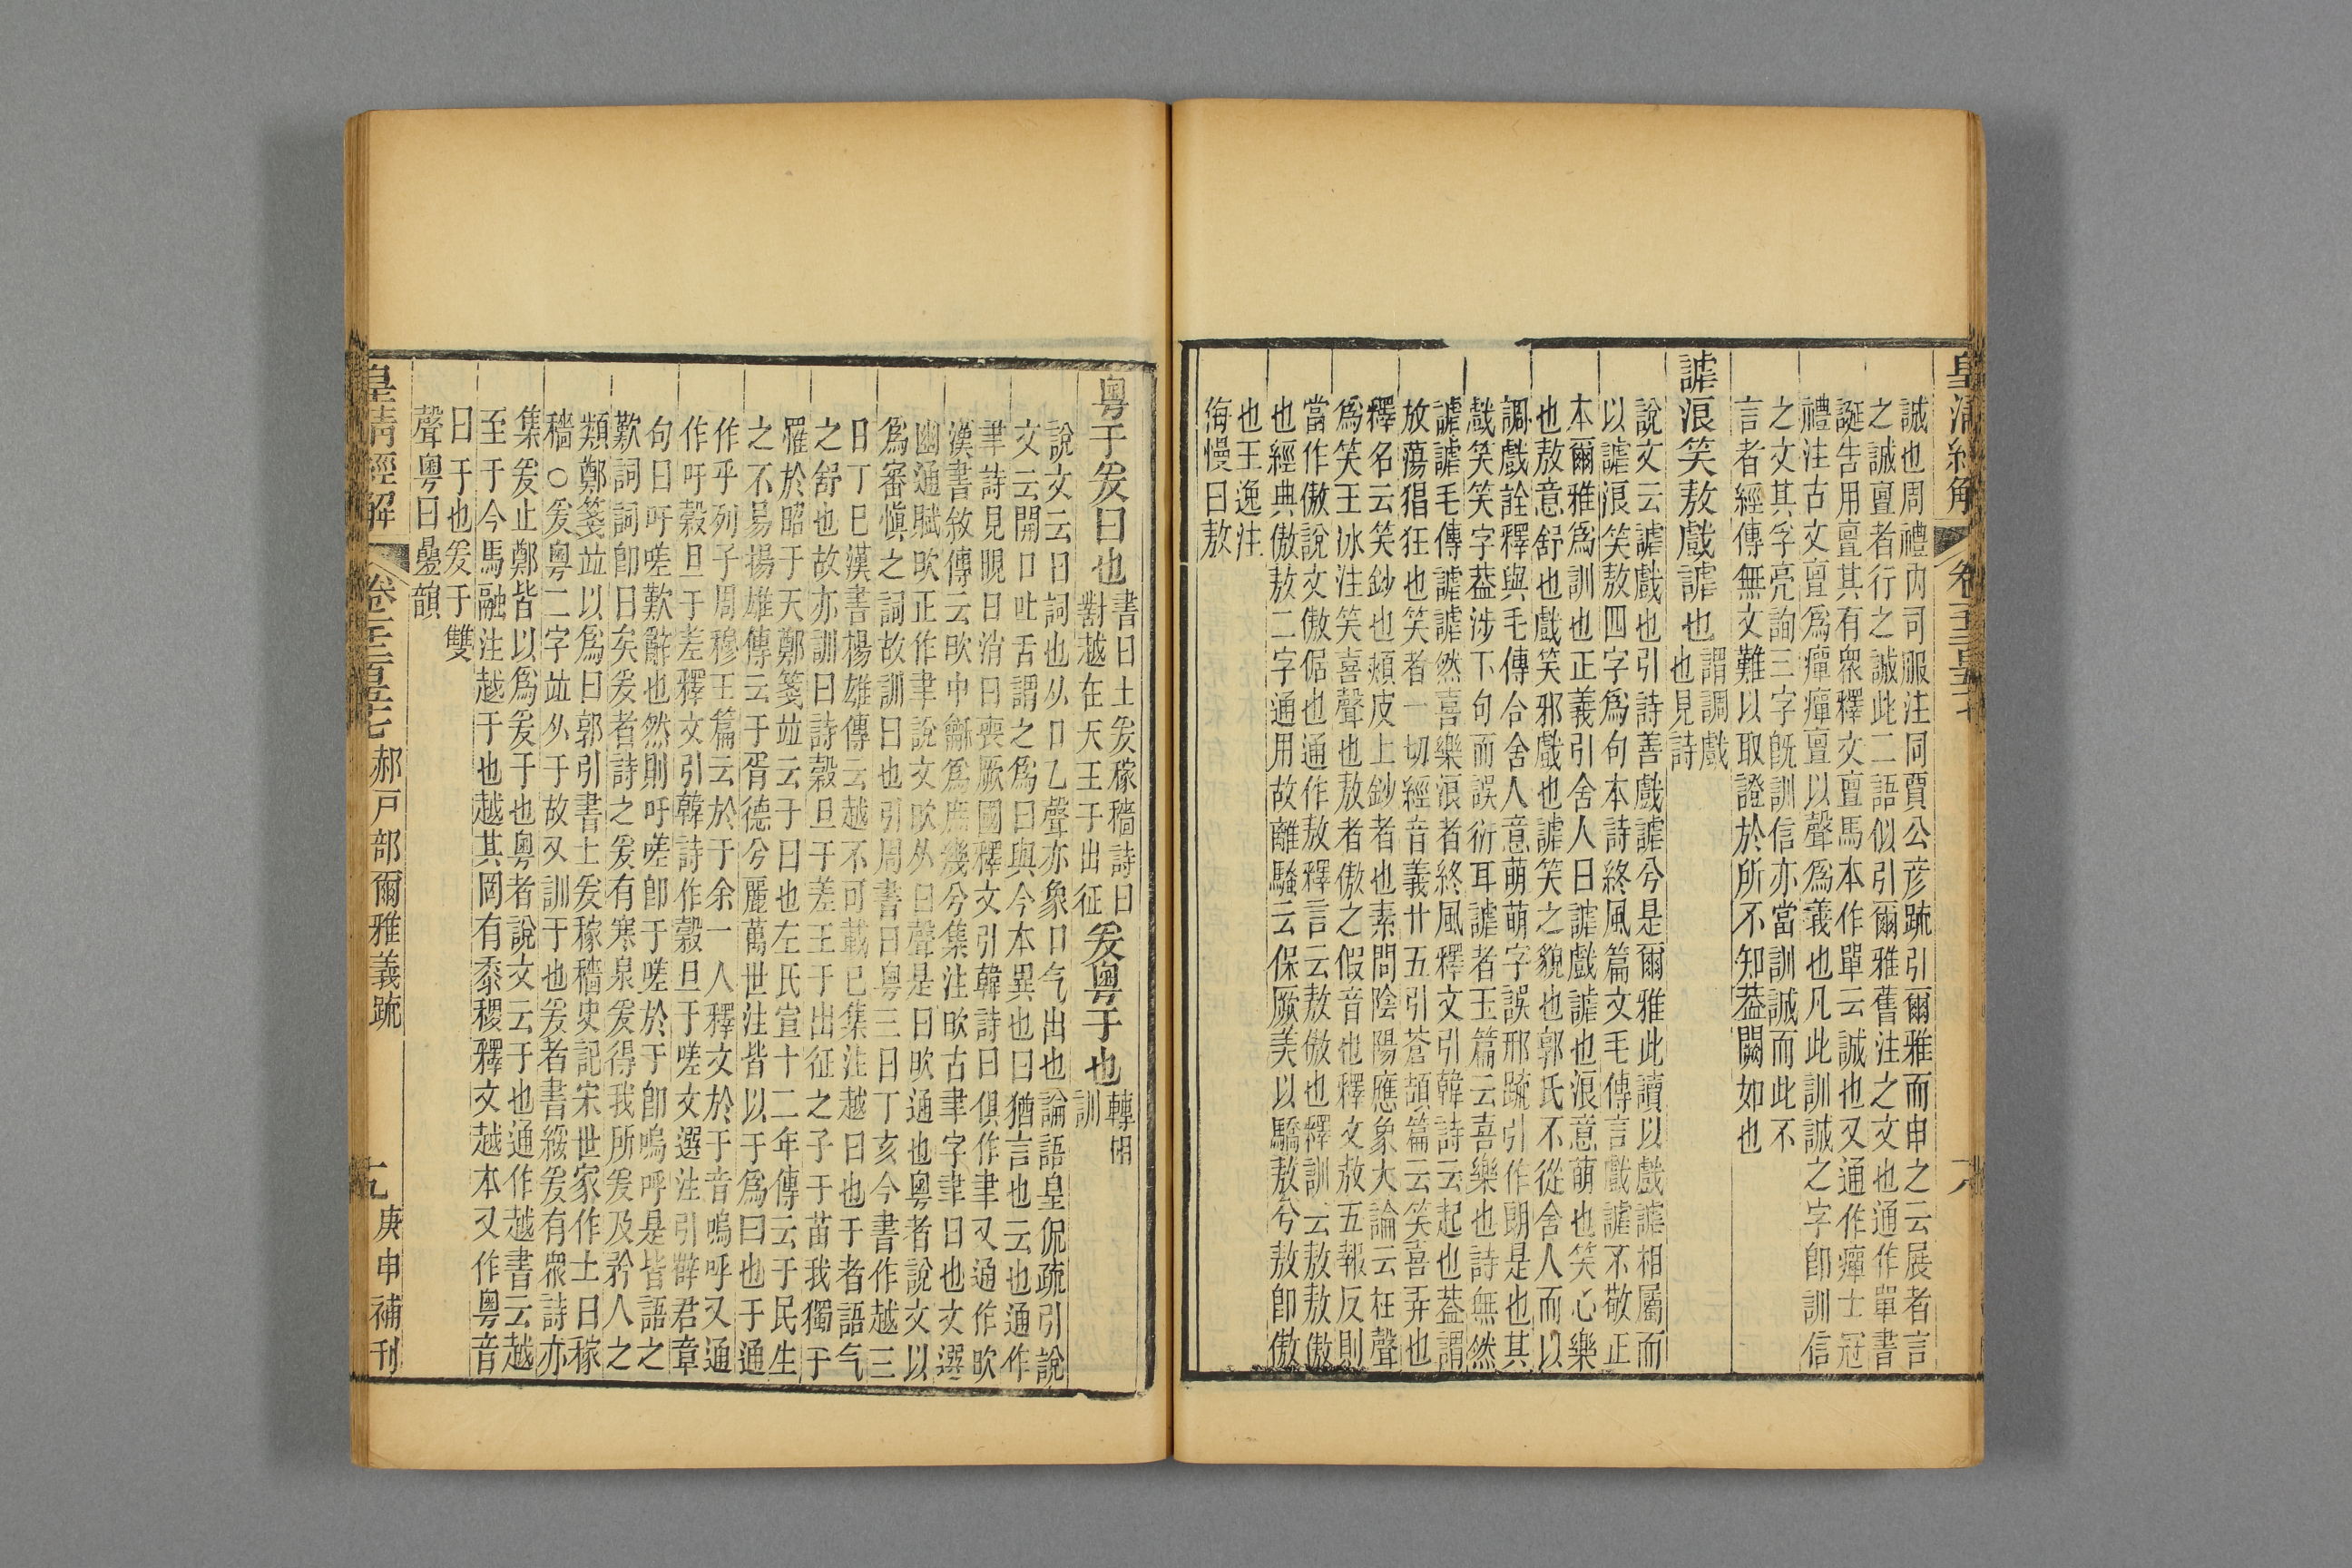 皇清經解
誠也周禮內司服注同賈公彦疏引爾雅而申之云展者言
之誠亶者行之誠此二語似引爾雅舊注之文也通作單書
誕告用亶其有衆釋文亶馬本作單云誠也又通作癉士冠
禮注古文亶爲癉癉亶以聲爲義也凡此訓誠之字卽訓信
之文其孚亮詢三字旣訓信亦當訓誠而此不
言者經傳無文難以取證於所不知葢闕如也
謔浪笑敖戲謔也
謂調戲
也見詩
說文云謔戲也引詩善戲謔兮是爾雅此讀以戲謔相屬而
以謔浪笑敖四字爲句本詩終風篇文毛傳言戲謔不敬正
本爾雅爲訓也正義引舍人曰謔戲謔也浪意萌也笑心樂
也敖意舒也戲笑邪戲也謔笑之貌也郭氏不從舍人而以
調戲詮釋與毛傳合舍人意萌萌字誤邢疏引作朗是也其
戲笑笑字葢涉下句而誤衍耳謔者玉篇云喜樂也詩無然
謔謔毛傳謔謔然喜樂浪者終風釋文引韓詩云起也葢謂
放蕩猖狂也笑者一切經音義廿五引蒼頡篇云笑喜弄也
釋名云笑鈔也頰皮上鈔者也素問陰陽應象大論云在聲
爲笑王冰注笑喜聲也敖者傲之假音也釋文敖五報反則
當作傲說文傲倨也通作敖釋言云敖傲也釋訓云敖敖傲
也經典傲敖二字通用故離騷云保厥美以驕敖兮敖卽傲
也王逸注
侮慢曰敖
粤于爰曰也
書曰土爰稼穡詩曰
對越在天王于出征
爰粤于也
轉相
訓
說文云曰詞也从口乙聲亦象口气出也論語皇侃疏引說
文云開口吐舌謂之爲曰與今本異也曰猶言也云也通作
聿詩見晛曰消曰喪厥國釋文引韓詩曰俱作聿又通作欥
漢書敘傳云欥中龢爲庶幾兮集注欥古聿字聿曰也文選
幽通賦欥正作聿說文欥从曰聲是曰欥通也粤者說文以
爲審愼之詞故訓曰也引周書曰粤三日丁亥今書作越三
日丁巳漢書楊雄傳云越不可載已集注越曰也于者語气
之舒也故亦訓曰詩穀旦于差王于出征之子于苗我獨于
罹於昭于天鄭箋竝云于曰也左氏宣十二年傳云于民生
之不易揚雄傳云于胥德兮麗萬世注皆以于爲曰也于通
作乎列子周穆王篇云於于余一人釋文於于音嗚呼又通
作吁穀旦于差釋文引韓詩作穀旦于嗟文選注引薛君章
句曰吁嗟歎辭也然則吁嗟卽于嗟於于卽嗚呼是皆語之
歎詞詞卽曰矣爰者詩之爰有寒泉爰得我所爰及矜人之
類鄭箋竝以爲曰郭引書土爰稼穡史記宋世家作土曰稼
穡○爰粤二字竝从于故又訓于也爰者書綏爰有衆詩亦
集爰止鄭皆以爲爰于也粤者說文云于也通作越書云越
至于今馬融注越于也越其罔有黍稷釋文越本又作粤音
曰于也爰于雙
聲粤曰疊韻
皇清經解
郝戸部爾雅義疏
庚申補刊